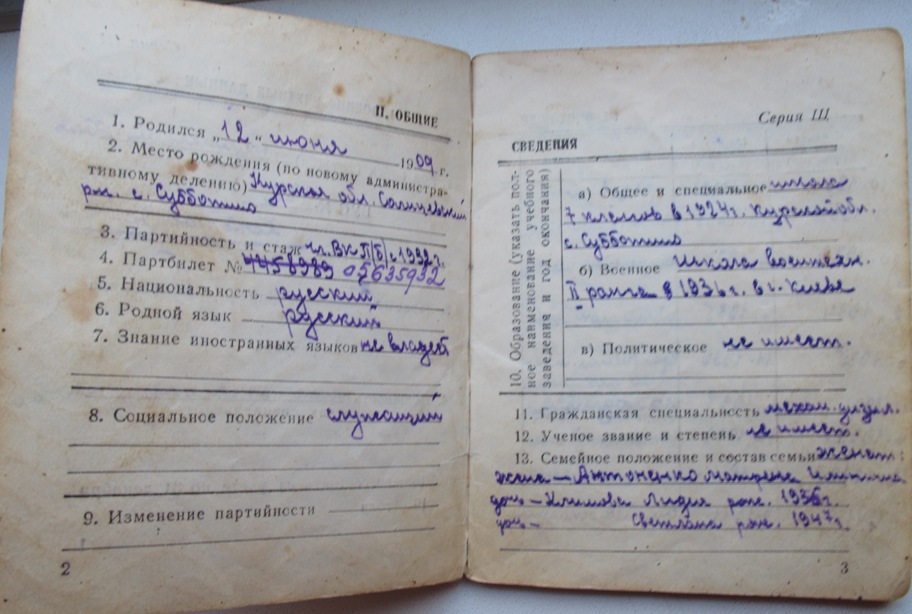 II. ОБЩИЕ
1. Родился „12“ июня 1909 г.
2. Место рождения (по новому администра-
тивному делению) Курская обл. Солнцевский
рн. с. Субботино
3. Партийность и стаж чл. ВКП(б) с 1932 г.
4. Партбилет № 4458989 05635932
5. Национальность русский
6. Родной язык русский
7. Знание иностранных языков не владеет
8. Социальное положение служащий
9. Изменение партийности
2
Серия III
СВЕДЕНИЯ
10. Образование (указать пол-
ное наименование учебного
заведения и год окончания)
а) Общее и специальное школа
7 классов в 1924 г. Курской обл.
с. Субботино
б) Военное школа воентехн.
II ранга в 1936 г. в г. Киеве
в) Политическое не имеет.
11. Гражданская специальность механ. дизел.
12. Ученое звание и степень не имеет.
13. Семейное положение и состав семьи женат:
жена — Антоненко Матрена
дочь — Климова Лидия рож. 1936 г.
дочь — Светлана рож. 1947 г.
3